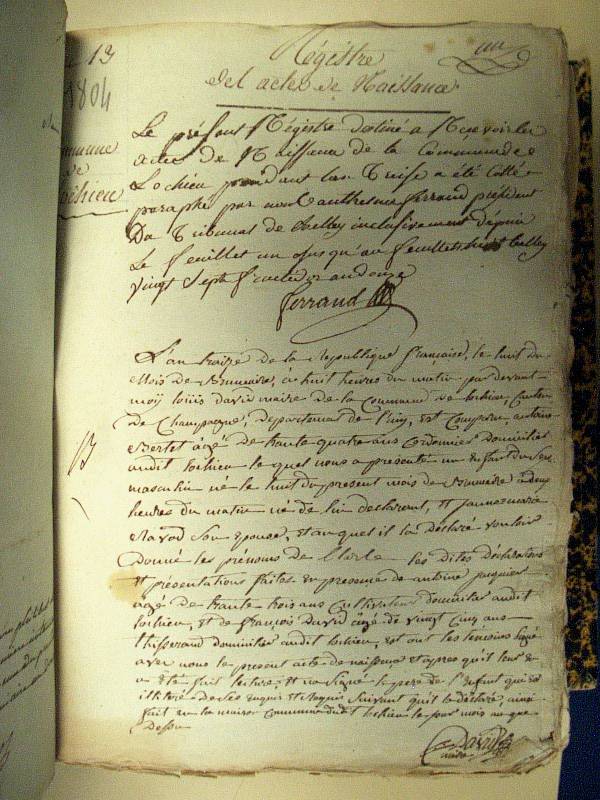 13
1804
Commune
de
Lochieu
un
Régistre
des actes de Naissance
Le présent Régistre destiné a Recevoir les
actes de Naissance de la Commune de
Lochieu pendant l'an Treize a été Cotté
paraphé par nous anthelme ferrand président
Du Tribunal de Belley inclusivement dépuis
Le feuillet un jusqu'au feuillet huit Belley
vingt Sept fructidor an douze
ferrand
B
L'an treize de la République française, le huit du
Mois de Brumaire, à huit heures du matin par devant
moÿ loüis david maire de la Commune de lochieu, Canton
De Champagne, Département de l'ain, est Comparu antoine
Bertet âgé de trante quatre ans Cordonier domicilié
audit lochieu le quel nous a présenté un Enfant du sexe
masculin né le huit du présent mois de Brumaire à deux
heures du matin né de lui déclarant, Et jeanne marie
Ravod Son épouse, et auquel il a Déclaré vouloir
Donné les prénoms de Charle les dites Déclarations
Et présentations faites En présence de antoine
agé de trante trois ans Cultivateur domicilié audit
lochieu, Et de françois David âgé de vingt Cinq ans
thisserand domicilié audit lochieu, Et ont les temoins signé
avec nous le présent acte de naissance Et après qu'il leur En
a été fait lecture, Et non signé le père de l'Enfant qui Est
illitéré De ce Enquis Et Requis Suivant qu'il la déclaré, ainsi
fait En la maison Commune dudit lochieu le jour mois an que
Dessus
David
maire